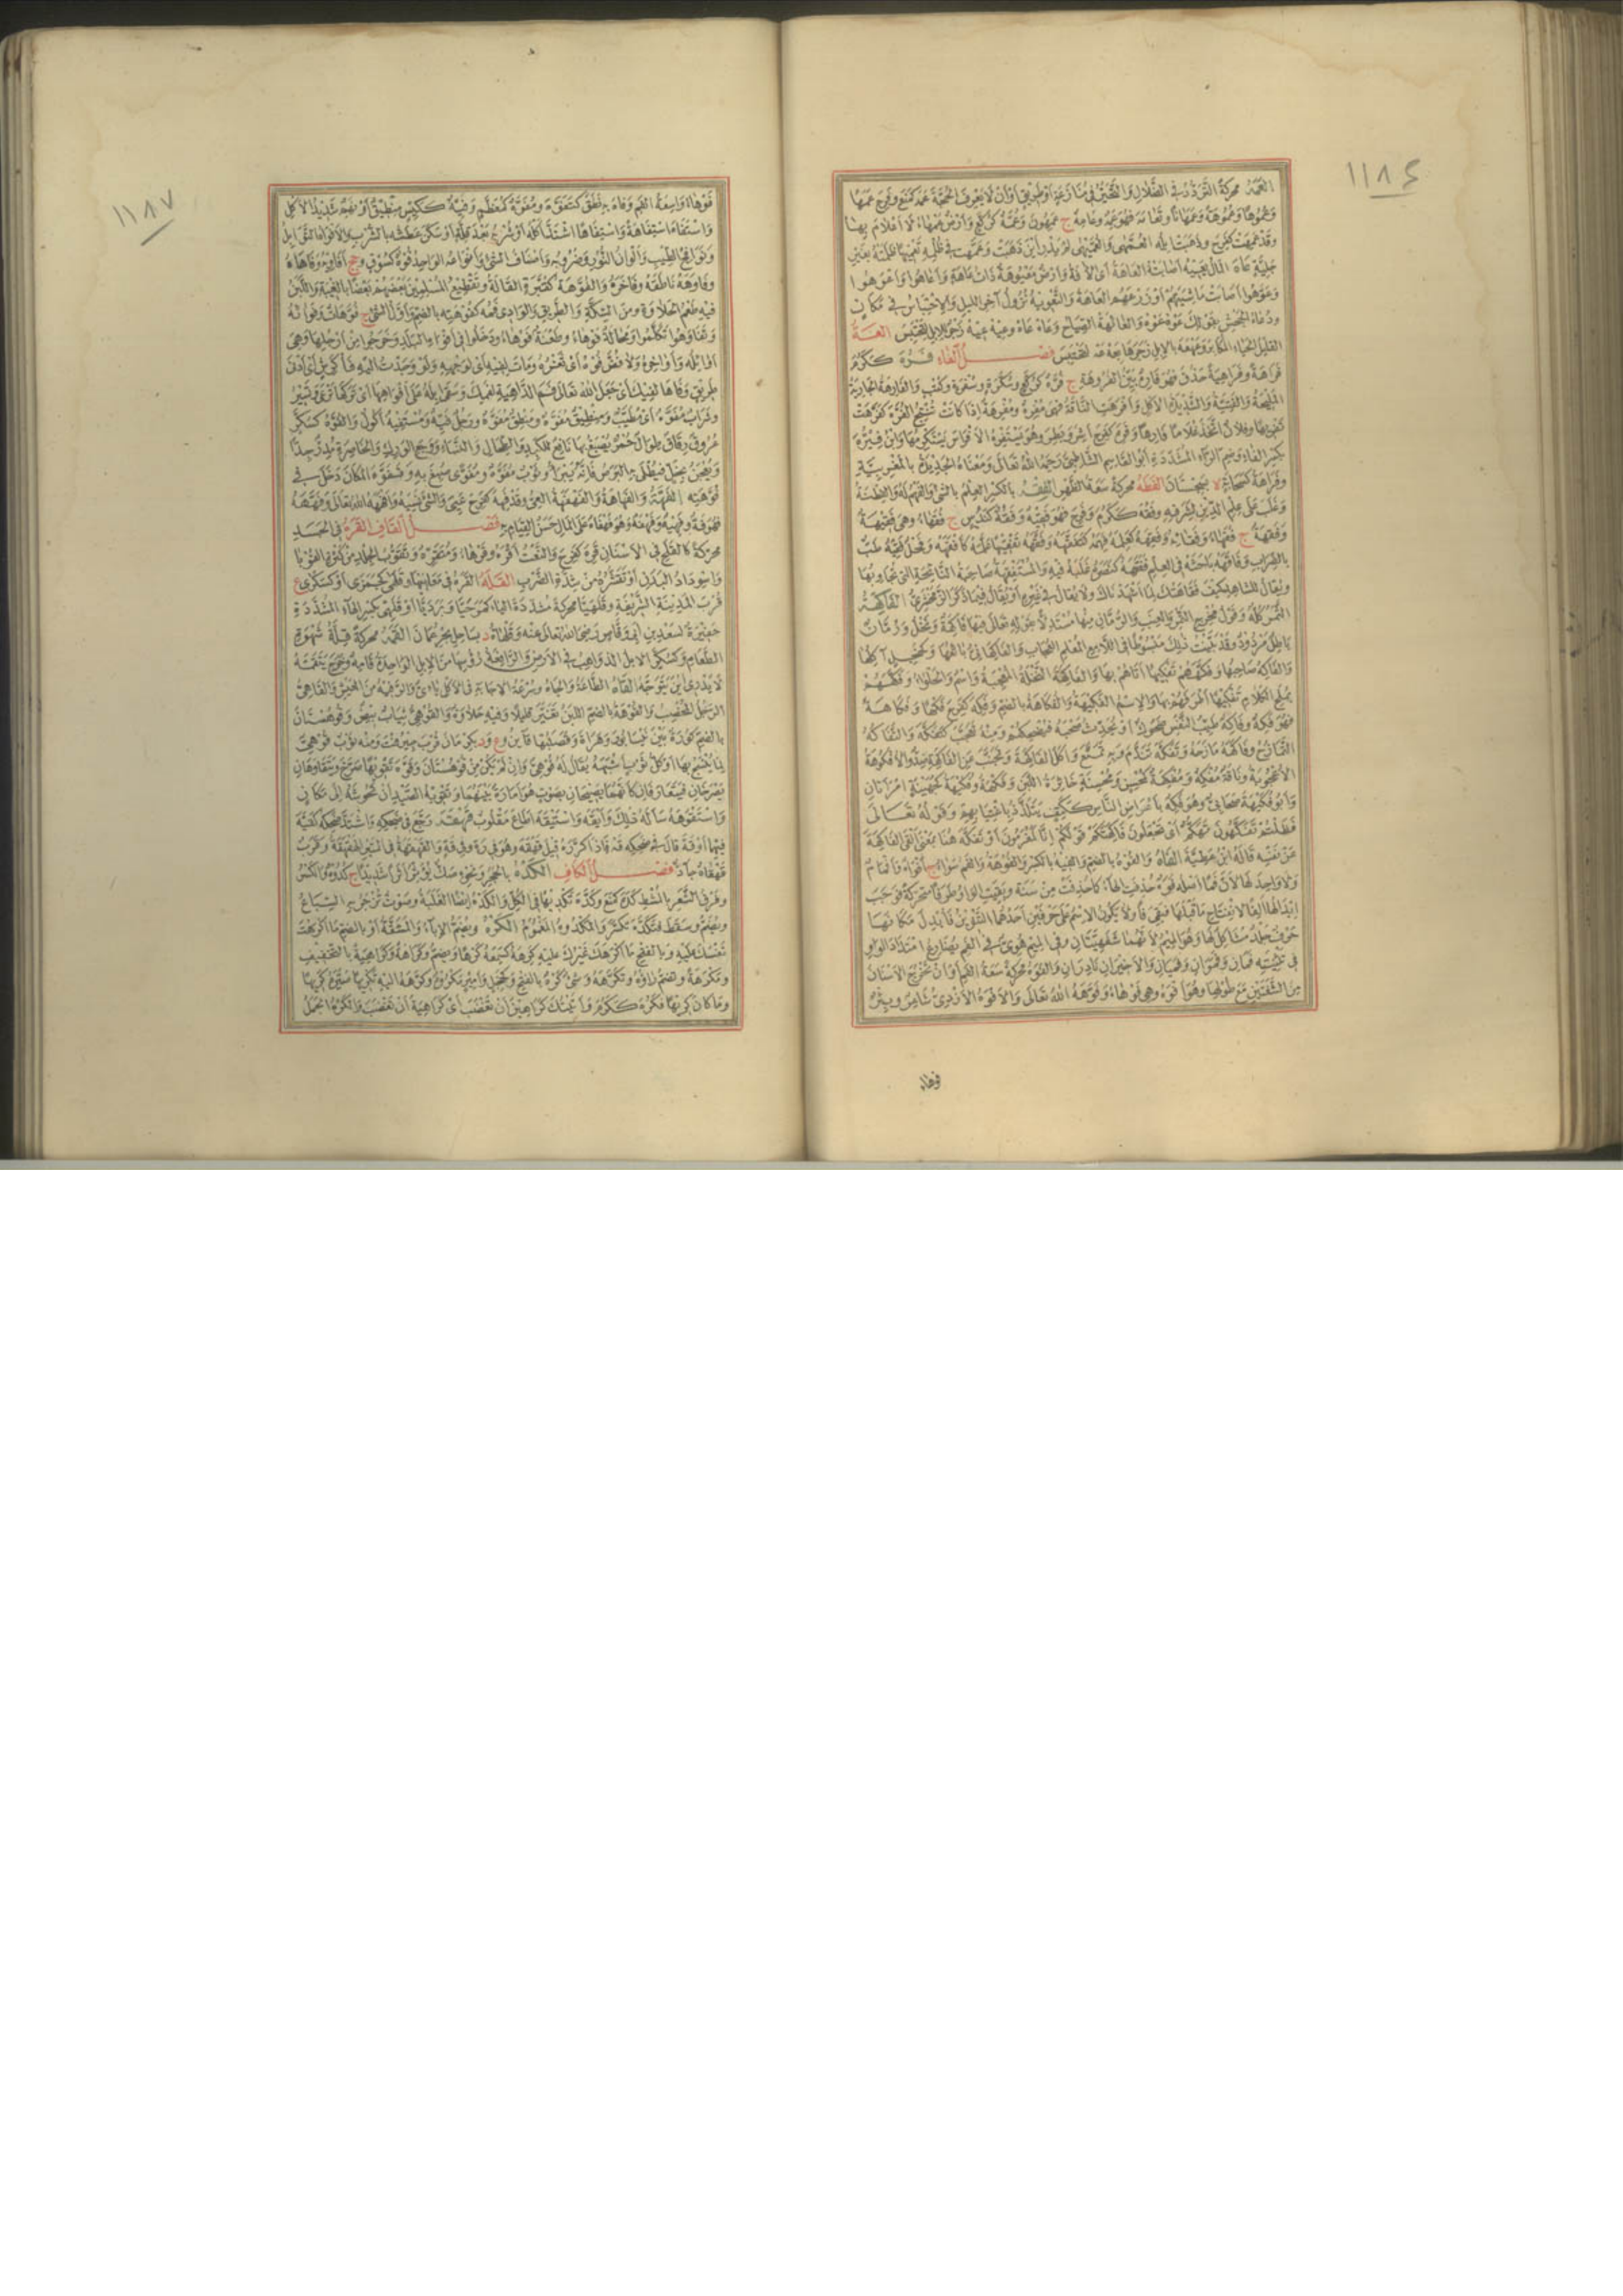 ١١٨٤
العمه محركة التردد في الضلال والتحير في منازعة أو طريق أو أن لا يعرف الحجة عمه كمنع وفرح عمها
وعموها وعموهة وعمهانا وتعامه فهو عمه وعامه ج عمهون وعمه كركع وأرض عمهاء لا أعلام بها
وقد عمهت كفرح وذهبت إبله العمهى والعميهى لم يدر أين ذهبت وعمهت في ظلمه تعميها ظلمته بغير
جلية عاه المال يعيه أصابته العاهة أي الآفة وأرض معيوهة ذات عاهة وأعاهوا وأعوهوا
وعوهوا أصابت ماشيتهم أو زرعهم العاهة والتعويه نزول آخر الليل والاحتباس في مكان
ودعاء الجحش بقولك عوه عوه والعائهة الصياح وعاه عاه وعيه عيه زجر للإبل لتحتبس العه
القليل الحياء المكابر وعهعه بالإبل زجرها بعه عه لتحتبس فصل الفاء فره ككرم
فراهة وفراهية حذق فهو فاره بين الفروهة ج فره كركع وسكرة وسفرة وكتب والفارهة الجارية
المليحة والفتية والشديدة الأكل وأفرهت الناقة فهي مفره ومفرهة إذا كانت تنتج الفره كفرهت
تفريها وفلان اتخذ غلاما فارها وفره كفرح أشر وبطر وهو يستفره الأفراس يستكرمها وابن فيره
بكسر الفاء وضم الراء المشددة أبو القاسم الشاطبي رحمه الله تعالى ومعناه الحديد بالمغربية
وفراهة كسحابة ة بسجستان الفطه محركة سعة الظهر الفقه بالكسر العلم بالشيء والفهم له والفطنة
وغلب على علم الدين لشرفه وفقه ككرم وفرح فهو فقيه وفقه كندس ج فقهاء وهي فقيهة
وفقهة ج فقهاء وفقائه وفقهه كعلمه فهمه كتفقهه وفقهه تفقيها علمه كأفقهه وفحل فقيه طب
بالضراب وفاقهه باحثه في العلم ففقهه كنصره غلبه فيه والمستفقهة صاحبة النائحة التي تجاوبها
ويقال للشاهد كيف فقاهتك لما أشهدناك ولا يقال في غيره أو يقال فيما ذكر الزمخشري الفاكهة
الثمر كله وقول مخرج التمر والعنب والرمان منها مستدلا بقوله تعالى فيهما فاكهة ونخل ورمان
باطل مردود وقد بينت ذلك مبسوطا في اللامع المعلم العجاب والفاكهاني بائعها وكخجل آكلها
والفاكه صاحبها وفكههم تفكيها أتاهم بها والفاكهة النخلة المعجبة واسم والحلواء وفكههم
بملح الكلام تفكيها أطرفهم بها والاسم الفكيهة والفكاهة بالضم وفكه كفرح فكها وفكاهة
فهو فكه وفاكه طيب النفس ضحوك أو يحدث صحبه فيضحكهم ومنه تعجب كتفكه والتفاكه
التمازح وفاكهه مازحه وتفكه تندم وبه تمتع وأكل الفاكهة وتجنب عن الفاكهة ضد والأفكوهة
الأعجوبة وناقة مفكه ومفكهة كمحسن ومحسنة خاثرة اللبن وفكهة وفكيهة كجهينة امرأتان
وأبو فكيهة صحابي وهو فكه بأعراض الناس ككتف يتلذذ باغتيابهم وقوله تعالى
فظلتم تفكهون تهكم أي تجعلون فاكهتكم قولكم إنا لمغرمون أو تفكه هنا بمعنى ألقى الفاكهة
عن نفسه قاله ابن عطية الفاه والفوه بالضم والفيه بالكسر والفوهة والفم سواء ج أفواه وأفمام
ولا واحد لها لأن فما أصله فوه حذفت الهاء كما حذفت من سنة وبقيت الواو طرفا متحركة فوجب
إبدالها ألفا لانفتاح ما قبلها فبقي فا ولا يكون الاسم على حرفين أحدهما التنوين فأبدل مكانها
حرف جلد مشاكل لها وهو الميم لأنهما شفهيتان وفي الميم هوي في الفم يضارع امتداد الواو
في تثنيته فمان وفموان وفميان والأخيران نادران والفوه محركة سعة الفم أو أن تخرج الأسنان
من الشفتين مع طولها وهو أفوه وهي فوهاء وفوهه الله تعالى والأفوه الأزدي شاعر وبئر
فوهاء
١١٨٧
فوهاء واسعة الفم وفاه به نطق كتفوه ومفوه كمعظم وفيه ككيس منطيق أو نهم شديد الأكل
واستفاه استفاهة واستفاها اشتد أكله أو شربه بعد قلة أو سكن عطشه بالشرب والأفواه التوابل
ونوافح الطيب وألوان النور وضروبه وأصناف الشيء وأنواعه الواحد فوه كسوق وجج أفاويه وفاهاه
وفاوهه ناطقه وفاخره والفوهة كقبرة القالة وتقطيع المسلمين بعضهم بعضا بالغيبة واللبن
فيه طعم الحلاوة ومن السكة والطريق والوادي فمه كفوهته بالضم وأول الشيء ج فوهات وفوائه
وتفاوهوا تكلموا ومحالة فوهاء وطعنة فوهاء ودخلوا في أفواه البلد وخرجوا من أرجلها وهي
أوائله وأواخره ولا فض فوه أي ثغره ومات لفيه أي لوجهه ولو وجدت إليه فا كرش أي أدنى
طريق وفاها لفيك أي جعل الله تعالى فم الداهية لفمك وسقى إبله على أفواهها أي تركها ترعى وتسير
وشراب مفوه أي مطيب ومنطيق مفوه ومنطق مفوه ورجل فيه ومستفيه أكول والفوه كسكر
عروق رقاق طوال حمر يصبغ بها نافع للكبد والطحال والنساء ووجع الورك والخاصرة مدر جدا
ويعجن بخل فيطلى به البرص فإنه يبرأ وثوب مفوه ومفوى صبغ به وتفوه المكان دخل في
فوهته الفهة والفهاهة والفهفهة العي وقد فهه كفرح عيي والشيء نسيه وأفهه الله تعالى وفههه
فهو فه وفهيه وفهفه وهو فهفاه على المال حسن القيام به فصل القاف القره في الجسد
محركة كالقلح في الأسنان قره كفرح والنعت أقره وقرهاء ومتقره وتقوب الجلد من كثرة القوباء
واسوداد البدن أو تقشره من شدة الضرب القله القره في معانيها وقلهى كجمزى أو كسكرى ع
قرب المدينة الشريفة وقلهيا محركة مشددة الياء كمرحيا وبرديا أو قلهي بكسر الهاء المشددة
حفيرة لسعد بن أبي وقاص رضي الله تعالى عنه وقلهاة د بساحل بحر عمان القمه محركة قلة شهوة
الطعام وكسكر الإبل الذواهب في الأرض والرافعة رؤسها من الإبل الواحدة قامه وخرج يتقمه
لا يدري أين يتوجه القاه الطاعة والجاه وسرعة الإجابة في الأكل ياءي والرفه من العيش والقاهي
الرجل المخصب والقوهة بالضم اللبن تغير قليلا وفيه حلاوة والقوهي ثياب بيض وقوهستان
بالضم كورة بين نيسابور وهراة وقصبتها قاين وع ود بكرمان قرب جيرفت ومنه ثوب قوهي
لما ينسج بها أو كل ثوب أشبهه يقال له قوهي وإن لم يكن من قوهستان وقوه تقويها صرخ ويتقاوهان
يصرخان فيتعارفان كأنهما يصيحان بصوت هو أمارة بينهما وتقويه الصيد أن تحوشه إلى مكان
واستقوهه سأله ذلك وأيقه واستيقه أطاع مقلوب قهقه رجع في ضحكه واشتد ضحكه كقه
فيهما أو قه قال في ضحكه قه فإذا كرره قيل قهقه وهو في رقة وفي قه والقهقهة في السير المقهقة وقرب
قهقاه جاد فصل الكاف الكده بالحجر ونحوه صك يؤثر أثرا شديدا ج كدوه والكسر
وفرق الشعر بالمشط كده كمنع وكدهه تكديها في الكل والكده أيضا الغلبة وصوت تزجر به السباع
ويضم وسقط فتكده تكسر والمكدوه المغموم الكره ويضم الإباء والمشقة أو بالضم ما أكرهت
نفسك عليه وبالفتح ما أكرهك غيرك عليه كرهه كسمعه كرها ويضم وكراهة وكراهية بالتخفيف
ومكرهة وتضم راؤه وتكرهه وشيء كره بالفتح وكخجل وأمير مكروه وكرهه إليه تكريها صيره كريها
وما كان كريها فكره ككرم وأتيتك كراهين أن تغضب أي كراهية أن تغضب والكره الجمل